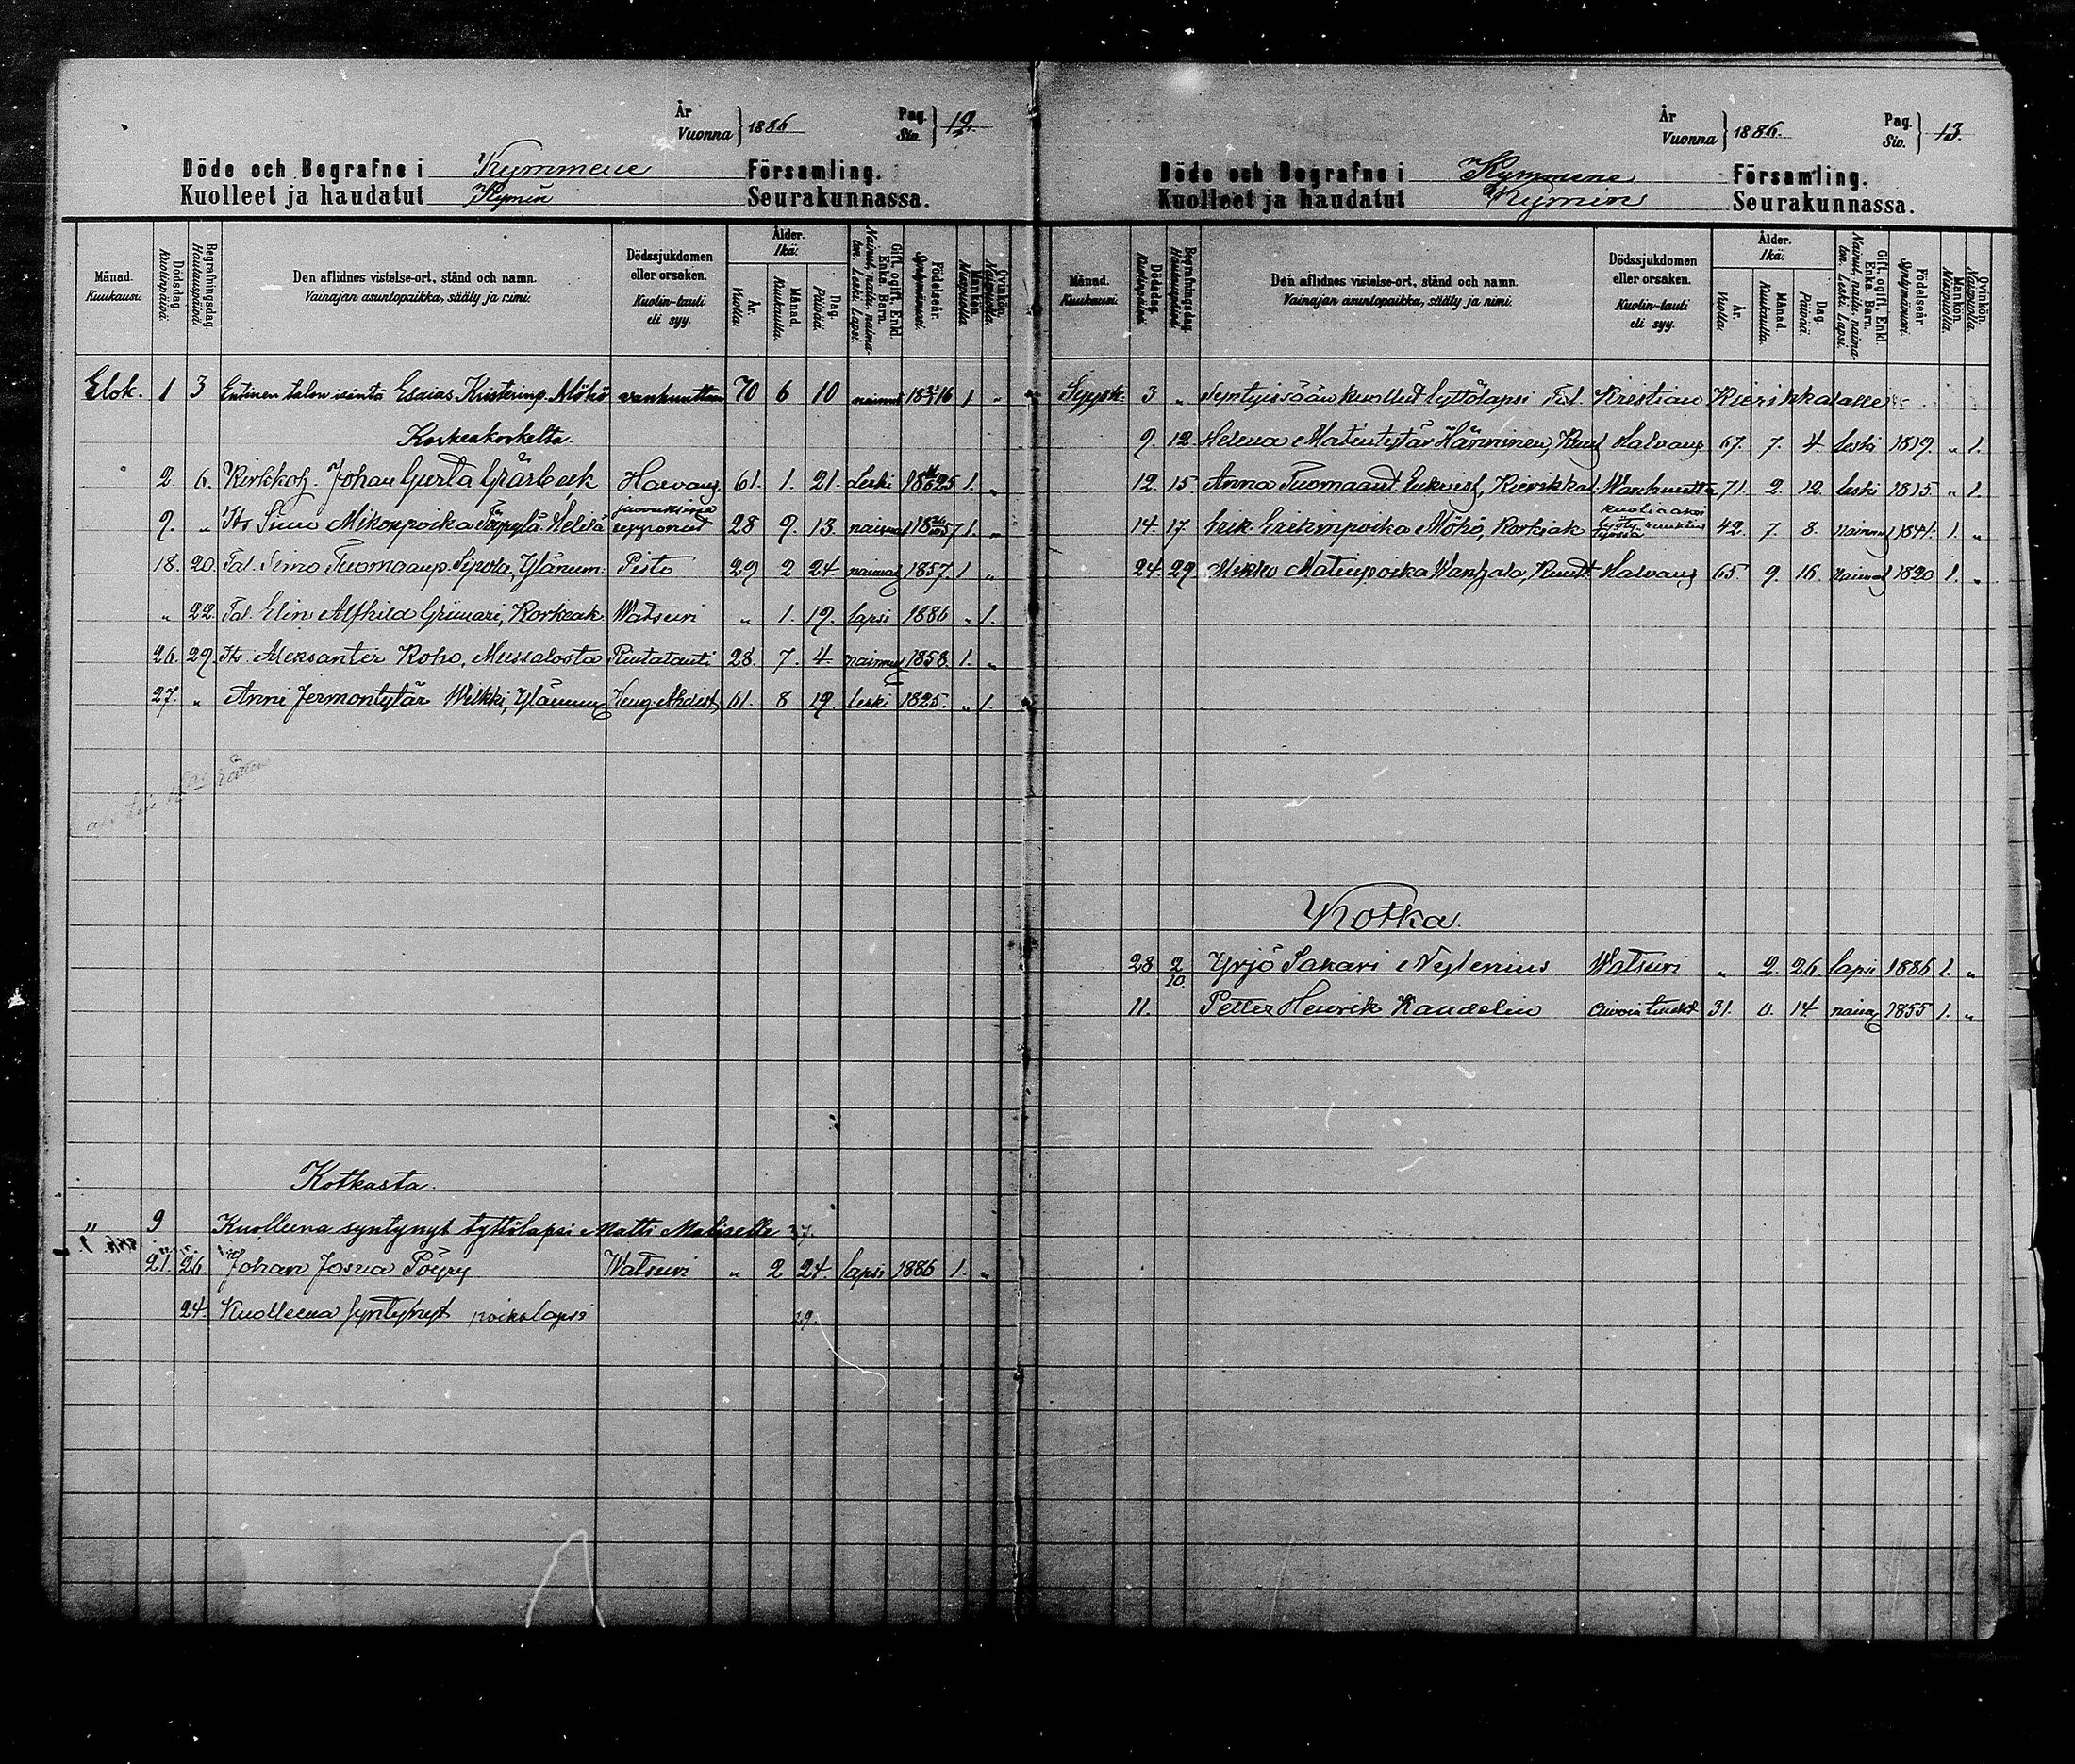 År
Vuonna } 1886
Pag.
Siv. } 12.
Döde och Begrafne i Kymmene Församling.
Kuolleet ja haudatut Kymin Seurakunnassa.
Månad. Kuukausi.
Dödsdag. Kuolinpäivä.
Begrafningsdag. Hautauspäivä.
Den aflidnes vistelse-ort, stånd och namn.
Vainajan asuntopaikka, sääty ja nimi.
Dödssjukdomen eller orsaken.
Kuolin-tauti eli syy.
Ålder. Ikä.
År. Vuotta.
Månad. Kuukautta.
Dag. Päivää.
Gift, ogift, Enkl. Enka, Barn.
Nainut, naitu, naimaton, Leski, Lapsi.
Födelseår. Syntymävuosi.
Mankön. Miespuolta.
Qvinkön. Naispuolta.
Elok. 1 3 Entinen talon isäntä Esaias Kristerinp. Möhö vanhuuttaan 70 6 10 nainut 1816 1 "
Korkeakoskelta.
2 6. Kirkkoh. Johan Gusta Gråsbeck Halvaus 61. 1. 21. Leski 1825 1. "
juovuksissa
9. " Its Simo Mikonpoika Heliä uppronut 28 9. 13. nainut 1857 1. "
18. 20. Tal. Simo Tuomaanp. Sipola, Ylänum. Pisto 29 2 24. nainut 1857. 1 "
" 22. Tal. Elin Alfhild Grimari, Korkeak. Watsuri " 1. 19. lapsi 1886 " 1.
26. 29. Its. Aleksanter Koho, Mussalosta Rintatauti 28. 7. 4. nainut 1858. 1. "
27. " Anni Jermontytär Wilkki, Ylänum Heng. Ahdist. 61. 8 19 leski 1825. " 1.
Kotkasta.
" 9 Kuolleena syntynyt tyttölapsi Matti Matiselle 37.
21. 26 Johan Josua Pöyry Watsuri " 2 24. lapsi 1886 1. "
24. Kuolleena syntynyt poikalapsi 29.
År
Vuonna } 1886.
Pag.
Siv. } 13.
Döde och Begrafne i Kymmene Församling.
Kuolleet ja haudatut Kymin Seurakunnassa.
Månad. Kuukausi.
Dödsdag. Kuolinpäivä.
Begrafningsdag. Hautauspäivä.
Den aflidnes vistelse-ort, stånd och namn.
Vainajan asuntopaikka, sääty ja nimi.
Dödssjukdomen eller orsaken.
Kuolin-tauti eli syy.
Ålder. Ikä.
År. Vuotta.
Månad. Kuukautta.
Dag. Päivää.
Gift, ogift, Enkl. Enka, Barn.
Nainut, naitu, naimaton, Leski, Lapsi.
Födelseår. Syntymävuosi.
Mankön. Miespuolta.
Qvinkön. Naispuolta.
Syysk. 3 " Syntyissään kuollut tyttölapsi Tal. Kristian Kierikkalalle
9. 12 Helena Matintytär Hänninen, Halvaus 67. 7. 4. leski 1819. " 1.
12. 15. Anna Tuomaant. Kierikkal. Wanhuutta 71. 2. 12. leski 1815. " 1.
14. 17. Erik Erikinpoika Möhö, Korkeak 42. 7. 8. nainut 1844. 1. "
24. 29 Mikko Matinpoika Wanhala, Halvaus 65. 9. 16. nainut 1820 1. "
Kotka.
28 2/10 Yrjö Sakari Neglenius Watsuri " 2. 26. lapsi 1886 1. "
11. Petter Henrik Kandelin 31. 0. 14 1855 1. "